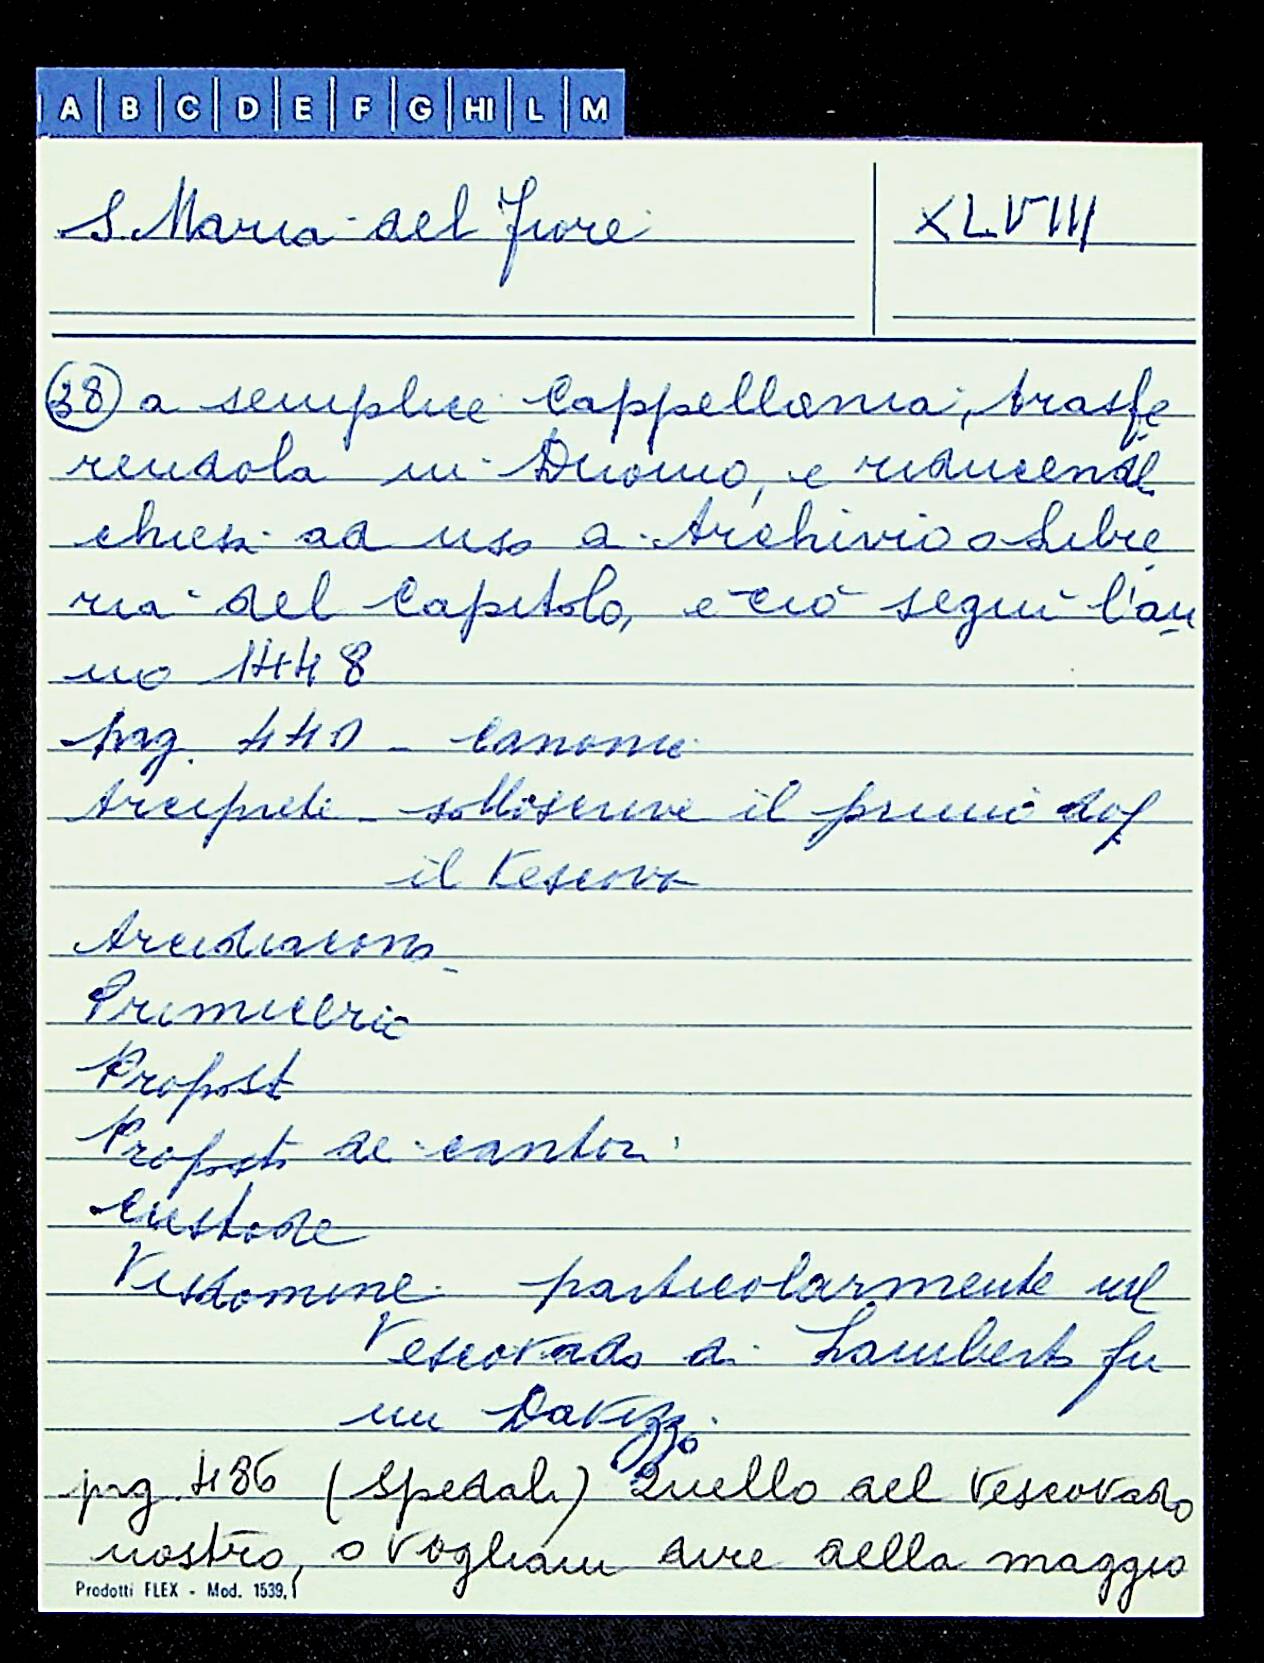 A B C D E F G HI L M
S. Maria del Fiore XLVIII
38 a semplice Cappellania, trasfe
rendola in Duomo, e riducend
chiesa ad uso a Archivio o Libre
ria del Capitolo, e ciò seguì l'an
no 1448
pag. 440 - Canonici
Arciprete - sottoscrive il primo dop
il Vescovo
Arcidiacono
Primicerio
Propost
Proposto de cantori
Custode
Visdomine particolarmente nel
Vescovado di Lamberto fu
un Davizzo
pag. 486 (Spedali) Quello del Vescovado
nostro, o vogliam dire della maggio
Prodotti FLEX - Mod. 1539.1